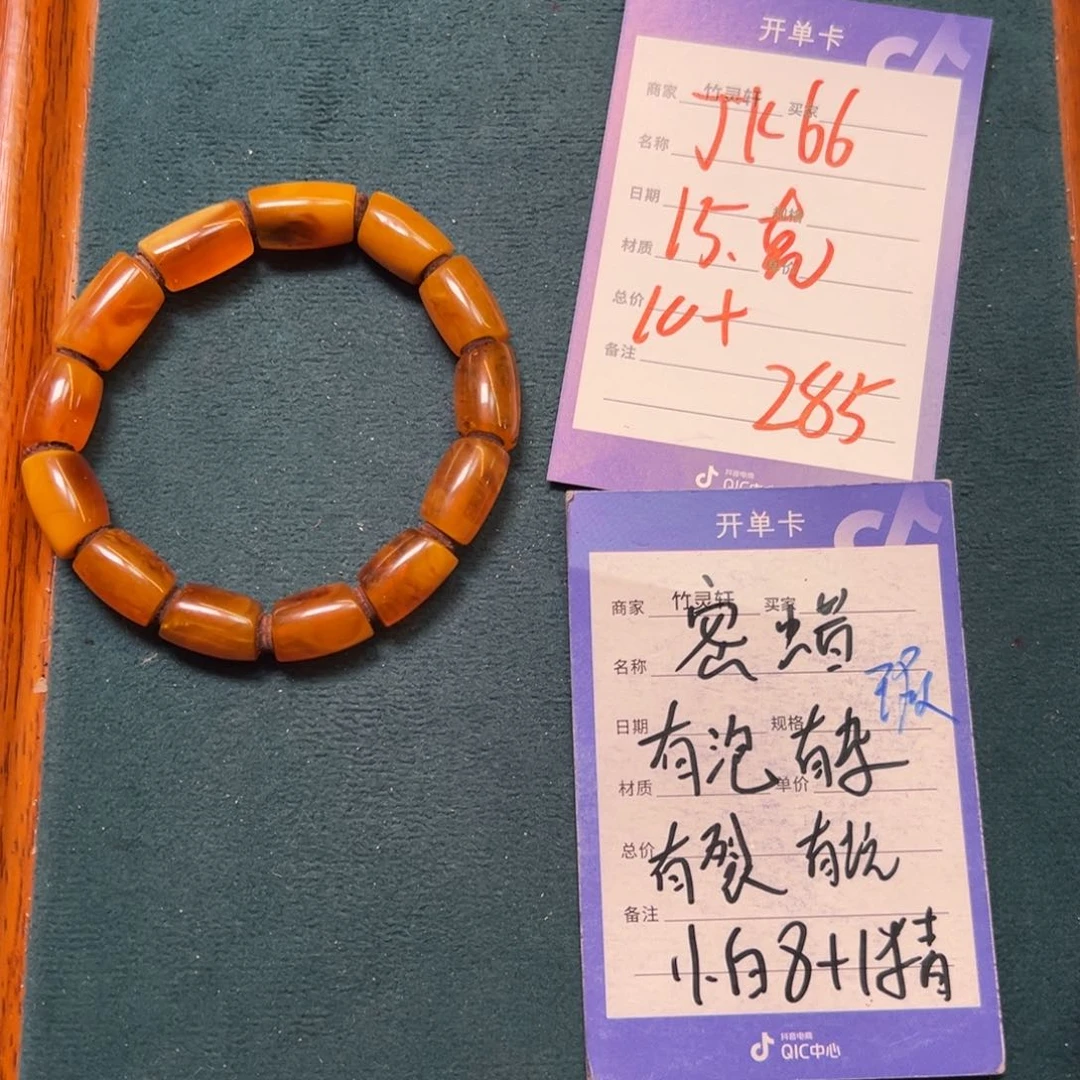 开单卡
商家 竹灵轩 买家
JK66
名称
日期
15.亮
材质
总价
10+
备注
285
抖音电商
开单卡
商家 竹灵轩 买家
密蜡
名称
日期 规格
有泡 有杂
材质 单价
总价
有裂 有坑
备注
小白8+1精
抖音电商
QIC中心